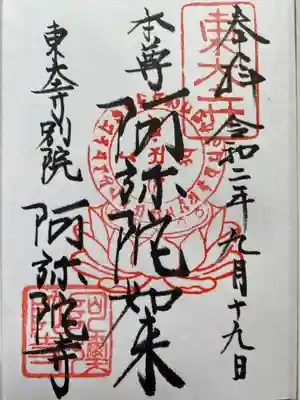 奉拝 令和二年九月十九日
本尊 阿弥陀如来
東大寺別院 阿弥陀寺
東大寺